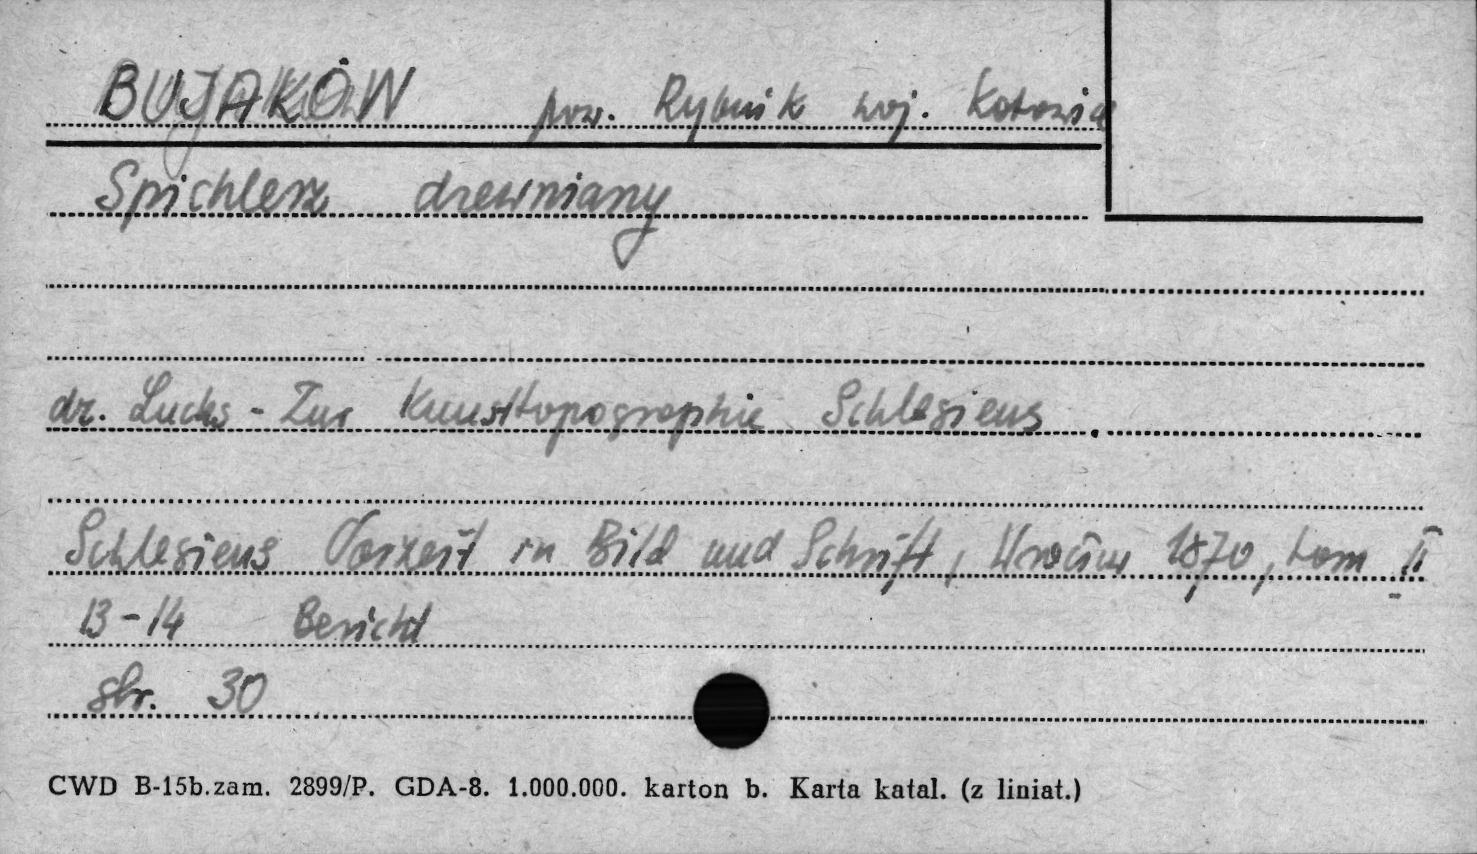 BUJAKÓW pow. Rybnik woj. Katowice
Spichlerz drewniany
dr. Luchs - Zur Kunsttopographie Schlesiens.
Schlesiens Vorzeit in Bild und Schrift, Wrocław 1870, tom II
13-14 Bericht
str. 30
CWD B-15b.zam. 2899/P. GDA-8. 1.000.000. karton b. Karta katal. (z liniat.)